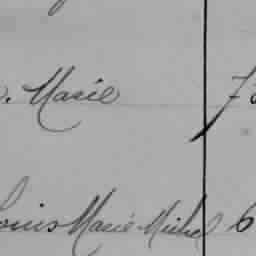 Marie 7
Louis Marie Michel 6